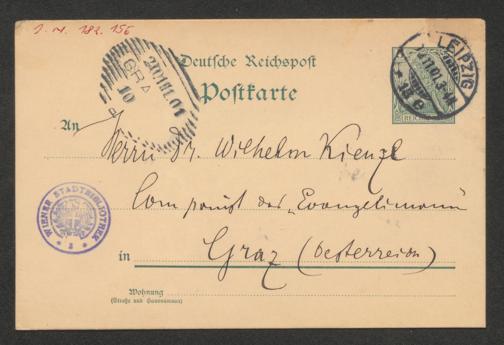 J. N. 182.156
Deutsche Reichspost
Postkarte
LEIPZIG
GRA
10
An Herrn Dr. Wilhelm Kienzl
Componist des „Evangelimann"
in Graz (Oesterreich)
WIENER STADTBIBLIOTHEK
Wohnung
(Straße und Hausnummer)